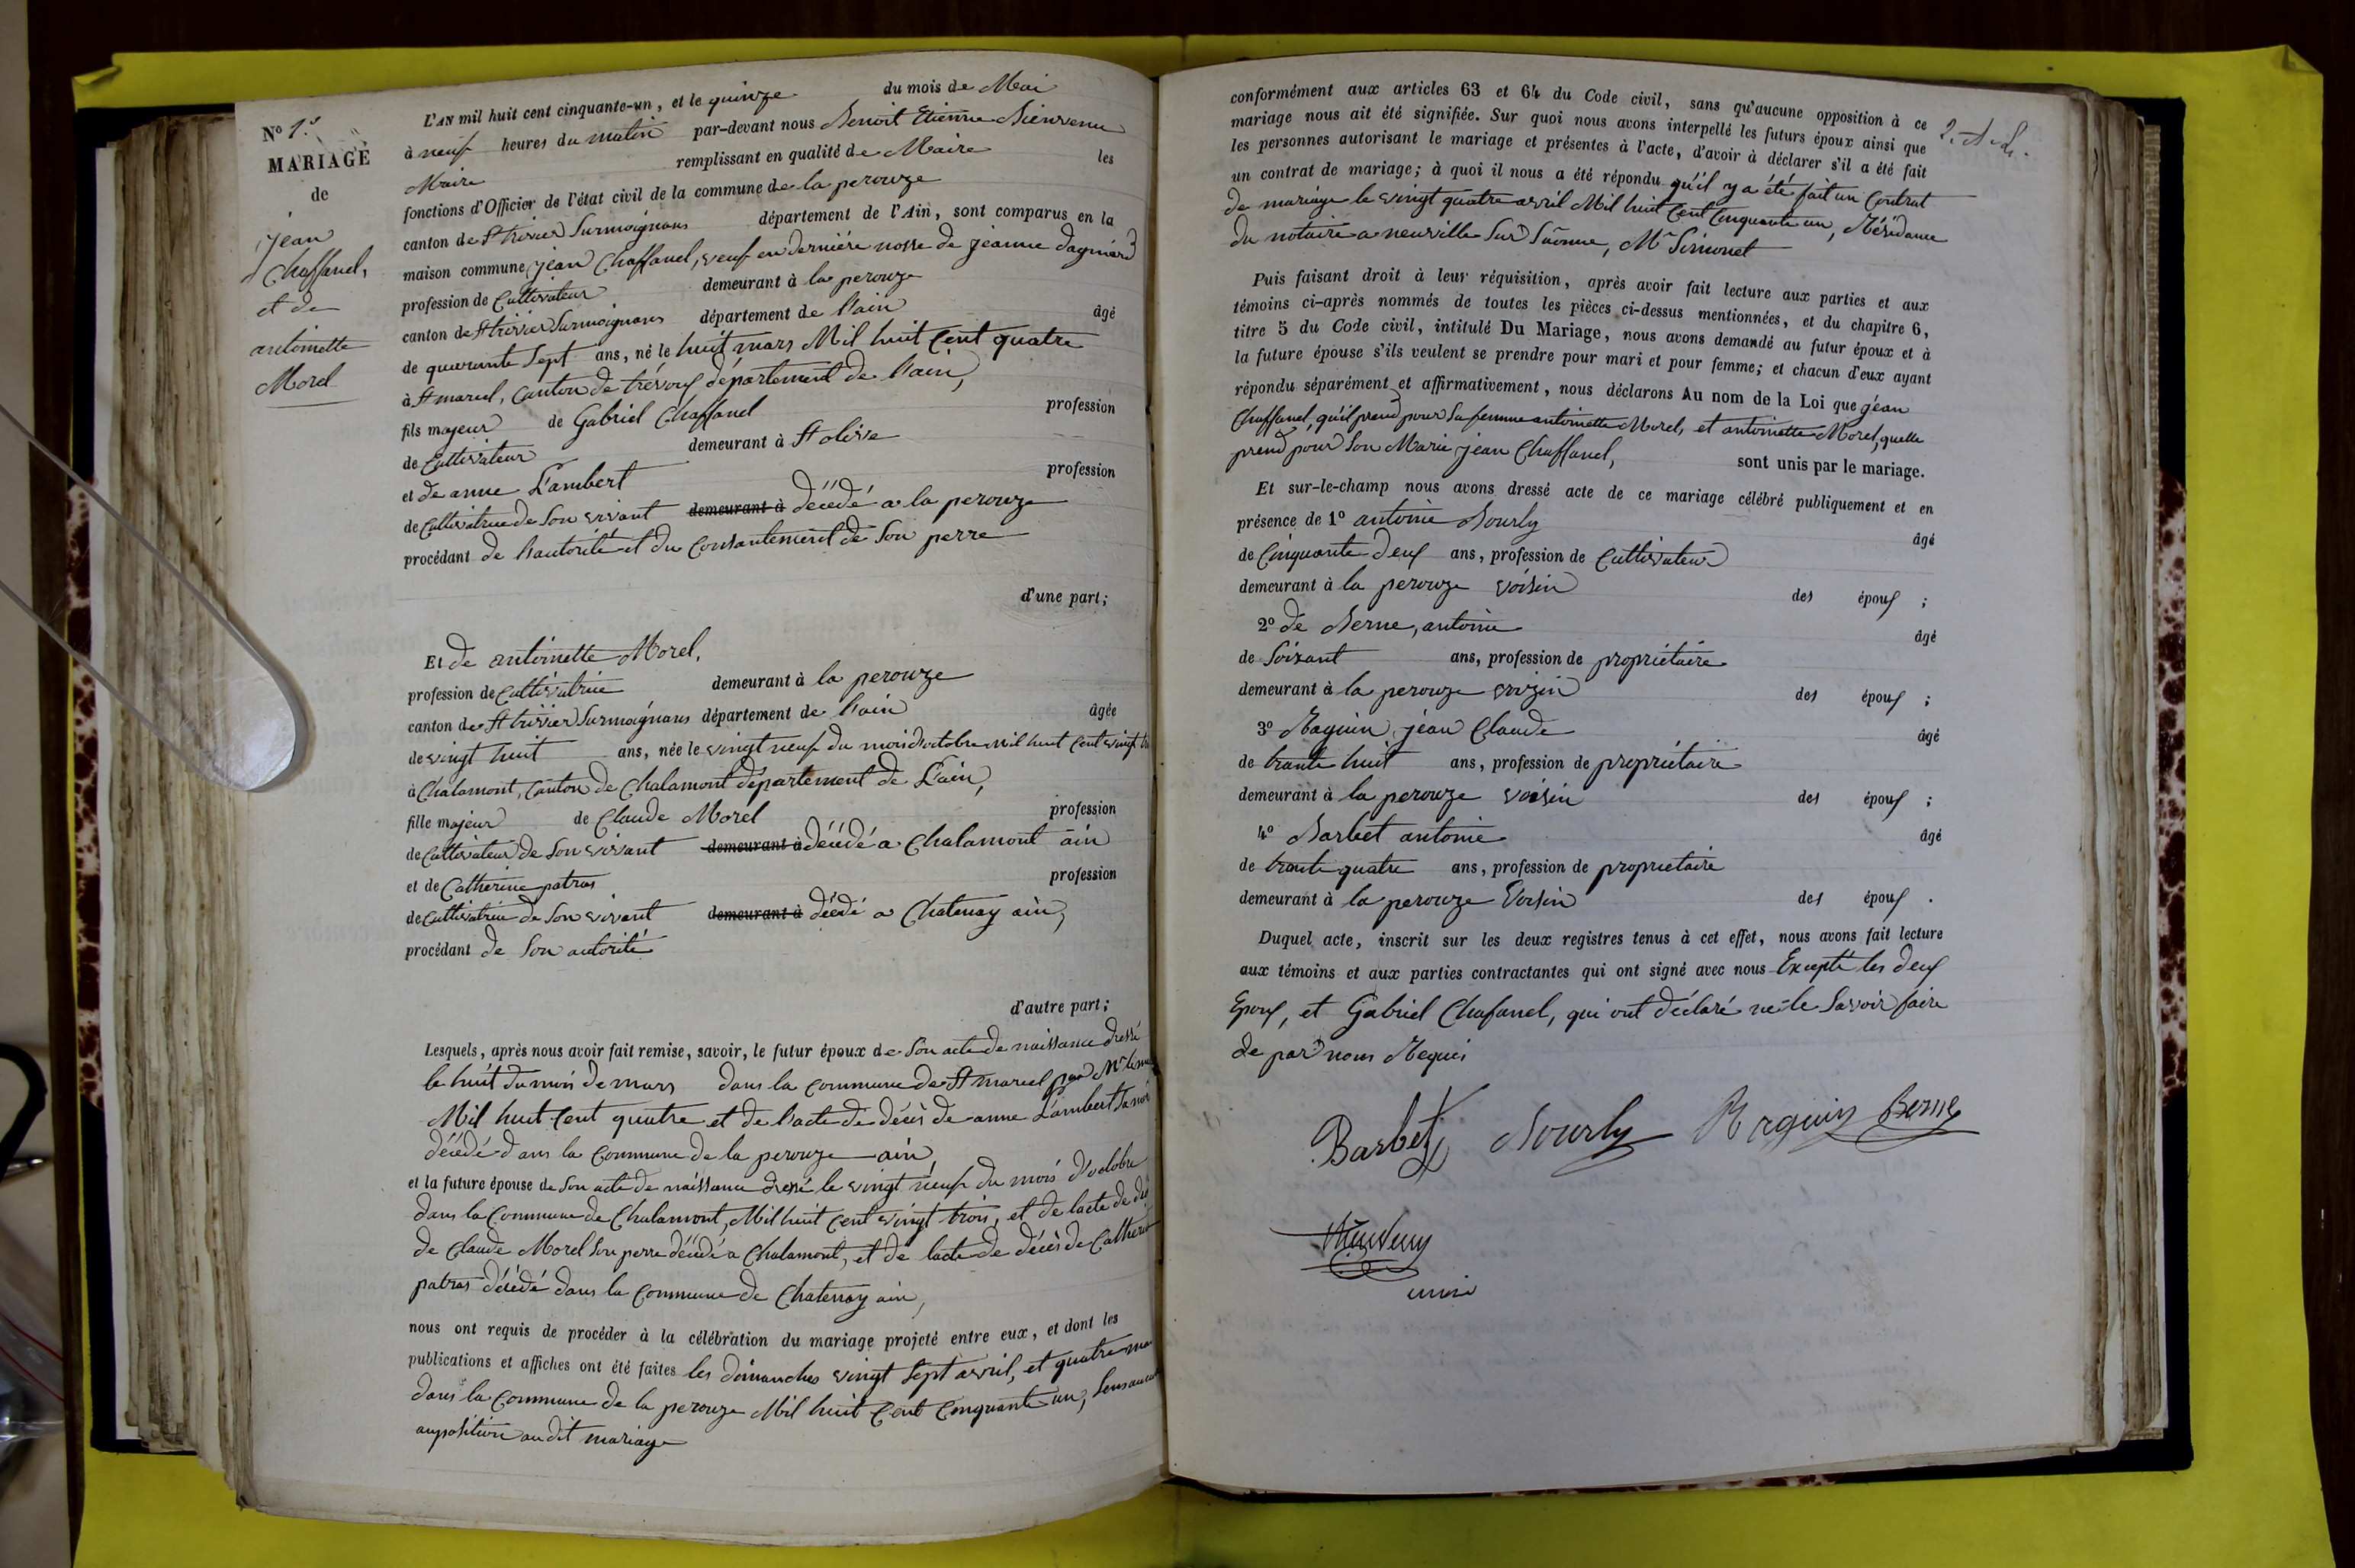 N° 1.er
MARIAGE
de
jean
Chaffanel,
et de
antoinette
Morel
L'AN mil huit cent cinquante-un, et le quinze du mois de Mai
à neuf heures du matin par-devant nous Benoit Etienne Bienvenu
Maire remplissant en qualité de Maire les
fonctions d'Officier de l'état civil de la commune de la perouze
canton de St trivier Surmoignans département de l'Ain, sont comparus en la
maison commune jean Chaffanel, veuf en derniére nosse de jeanne dagnard
profession de Cultivateur demeurant à la perouze
canton de St trivier Surmoignans département de l'ain âgé
de quarante Sept ans, né le huit mars Mil huit Cent quatre
à St marcel, Canton de trévoux département de l'ain,
fils majeur de Gabriel Chaffanel profession
de Cultivateur demeurant à St olive
et de anne Lambert profession
de Cultivatrice de Son vivant demeurant à décédé a la perouze
procédant de l'autorité et du Consantement de Son perre
d'une part;
Et de antoinette Morel,
profession de Cultivatrice demeurant à la perouze
canton de St trivier Surmoignans département de l'ain âgée
de vingt huit ans, née le vingt neuf du mois d'octobre mil huit Cent vingt
à Chalamont, Canton de Chalamont département de L'ain,
fille majeur de Claude Morel profession
de Cultivateur de Son vivant demeurant à décédé a Chalamont ain
et de Catherine patras profession
de Cultivatrice de Son vivant demeurant à décédé a Chatenay ain,
procédant de Son autorité
d'autre part;
Lesquels, après nous avoir fait remise, savoir, le futur époux de Son acte de naissance dressé
le huit du mois de mars dans la commune de St marcel par Mr
Mil huit Cent quatre et de l'acte de décès de anne Lambert Sa
décédé dans la Commune de la perouze ain,
et la future épouse de Son acte de naissance dressé le vingt neuf du mois d'octobre
dans la Commune de Chalamont, Mil huit Cent vingt trois, et de lacte de
de Claude Morel Son perre décédé a Chalamont, et de lacte de décès de Catherine
patras décédé dans la Commune de Chatenay ain,
nous ont requis de procéder à la célébration du mariage projeté entre eux, et dont les
publications et affiches ont été faites les dimanches vingt Sept avril, et quatre
dans la Commune de la perouze Mil huit Cent Cinquante un, Sans
ouposition au dit mariage
conformément aux articles 63 et 64 du Code civil, sans qu'aucune opposition à ce
mariage nous ait été signifiée. Sur quoi nous avons interpellé les futurs époux ainsi que
les personnes autorisant le mariage et présentes à l'acte, d'avoir à déclarer s'il a été fait
un contrat de mariage; à quoi il nous a été répondu qu'il y a été fait un Contrat
de mariage le vingt quatre avril Mil huit Cent Cinquante un, Résidance
du notaire a neuville Sur Saonne, Mr Simonet
Puis faisant droit à leur réquisition, après avoir fait lecture aux parties et aux
témoins ci-après nommés de toutes les pièces ci-dessus mentionnées, et du chapitre 6,
titre 5 du Code civil, intitulé Du Mariage, nous avons demandé au futur époux et à
la future épouse s'ils veulent se prendre pour mari et pour femme; et chacun d'eux ayant
répondu séparément et affirmativement, nous déclarons Au nom de la Loi que jean
Chaffanel, qu'il prend pour Sa femme antoinette Morel, et antoinette Morel, quelle
prend pour Son Marie jean Chaffanel, sont unis par le mariage.
Et sur-le-champ nous avons dressé acte de ce mariage célébré publiquement et en
présence de 1° antoine Bourly âgé
de Cinquante deux ans, profession de Cultivateur
demeurant à la perouze voisin des époux ;
2° de Berne, antoine âgé
de Soixant ans, profession de propriétaire
demeurant à la perouze voizin des époux ;
3° Raguin jean Claude âgé
de trante huit ans, profession de propriétaire
demeurant à la perouze voisin des époux ;
4° Barbet antoine âgé
de trante quatre ans, profession de proprietaire
demeurant à la perouze Voisin des époux .
Duquel acte, inscrit sur les deux registres tenus à cet effet, nous avons fait lecture
aux témoins et aux parties contractantes qui ont signé avec nous Excepté les deux
Epoux, et Gabriel Chafanel, qui ont déclaré ne le Savoir faire
de par nous Requis
Barbet Bourly Raguin Berne
Bienvenu